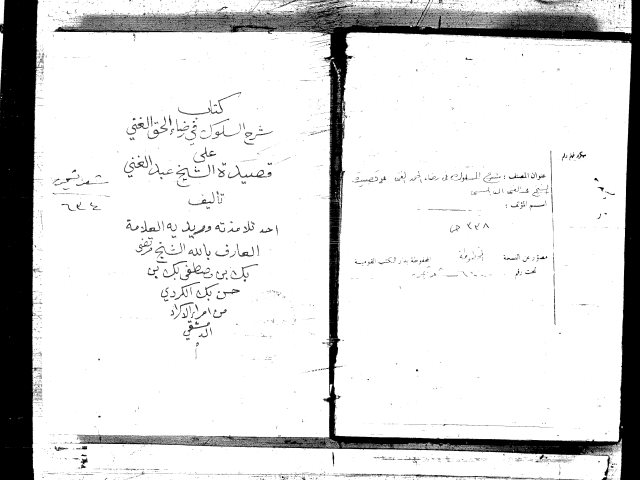 عنوان المصنف : شرح السلوك فى رضاء الحق الغنى على قصيدة
الشيخ عبد الغنى
اسم المؤلف :
٣٣٨
مصور عن النسخة
المحفوظة بدار الكتب القومية
تحت رقم
كتاب
شرح السلوك في رضاء الحق الغني
على
قصيدة الشيخ عبد الغني
تأليف
احد تلامذته ومريديه العلامة
العارف بالله الشيخ مرتضى
بك بن مصطفى بك بن
حسن بك الكردي
من امراء الاكراد
الدمشقي
شعر تيمور
٦٣٤